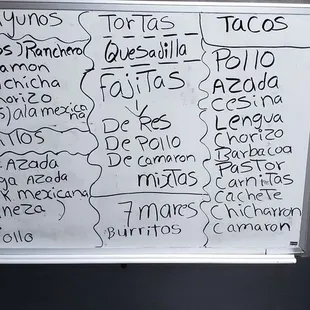 yunos
s) Ranchero
amon
nchicha
horizo
s) ala mexica
na
Azada
ga Azada
k mexicana
neza )
ollo
TorTas
Quesadilla
FajiTas
y
De Res
De Pollo
De camaron
mixtas
7 mares
Burritos
Tacos
Pollo
Azada
Cesina
Lengua
Chorizo
Barbacoa
Pastor
Carnitas
Cachete
Chicharron
Camaron